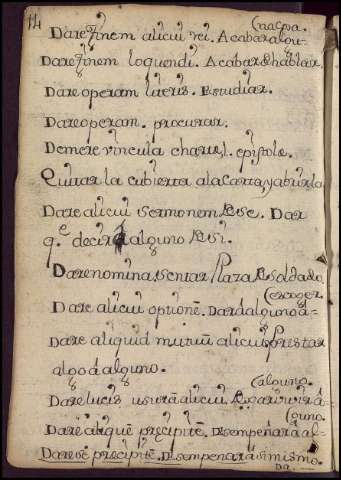 14
(na cosa.
Dare finem alicui rei. Acabar algu-
Dare finem loquendi. Acabar de hablar.
Dare operam literis. Estudiar.
Dare operam. procurar.
Demere vincula chartę, l. epistolę.
Quitar la cubierta a la Carta, y abrirla.
Dare alicui sermonem de se. Dar
q.e decir â alguno de si.
Dare nomina. Sentar Plaza de Soldado.
(escoger
Dare alicui optionē. Dar â alguno â-
Dare aliquid mutuū alicui. Prestar
algo â alguno.
(alguno.
Dare lucis usurā alicui. â
(guno
Dare aliquē pręcipitē. Despeñar â al-
Dare se pręcipitē. Despeñarse â si mismo.
Da